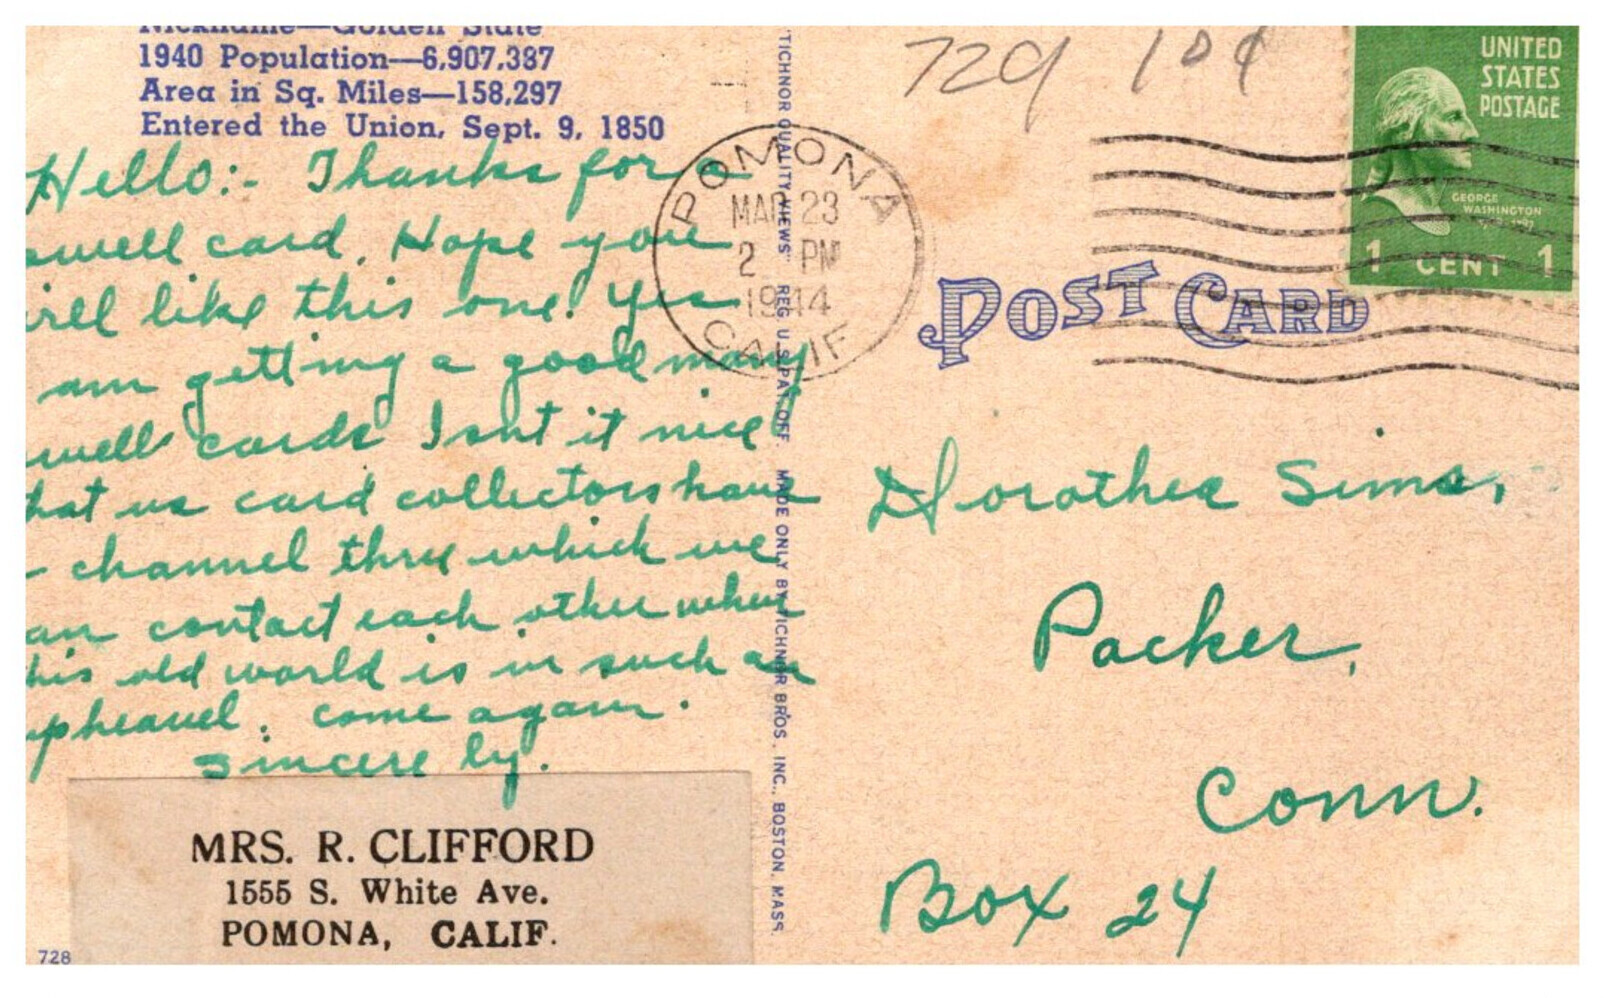 Nickname—Golden State
1940 Population—6,907,387
Area in Sq. Miles—158,297
Entered the Union, Sept. 9, 1850
Hello:- Thanks for a
swell card. Hope you
will like this one. Yes
am getting a good many
swell cards Isnt it nice
that us card collectors have
a channel thru which we
can contact each other when
this old world is in such an
upheavel. come again.
Sincerely.
MRS. R. CLIFFORD
1555 S. White Ave.
POMONA, CALIF.
728
"TICHNOR QUALITY VIEWS" REG. U. S. PAT. OFF. MADE ONLY BY TICHNOR BROS., INC., BOSTON, MASS.
POMONA
MAR 23
2 PM
1944
CALIF
729 10¢
UNITED
STATES
POSTAGE
GEORGE
WASHINGTON
1 CENT 1
POST CARD
Dorothea Sims,
Packer,
Conn.
Box 24